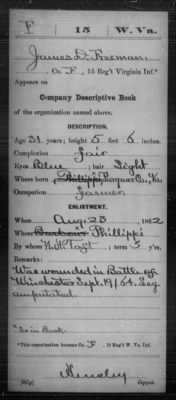 F 15 W. Va.
James D. Freeman
Co. F, 15 Reg't Virginia Inf.*
Appears on
Company Descriptive Book
of the organization named above.
DESCRIPTION.
Age 31 years; height 5 feet 6 inches.
Complexion Fair
Eyes Blue; hair Light
Where born Philippi Co., Va.
Occupation Farmer
ENLISTMENT.
When Aug. 23, 1862
Where Barbour Phillippi
By whom ; term 3 y'rs.
Remarks:
Was wounded in Battle of
Winchester Sept. 19/64. Leg
amputated.
*This organization became Co. F, 15 Reg't W. Va. Inf.
Copyist.